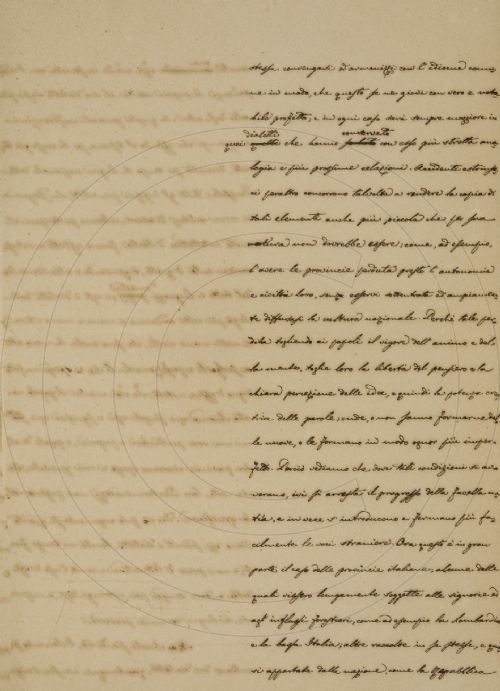 stessa convenganti ed avvenirsi con l'idioma comu-
ne in modo, che questo se ne giovi con vero e nota
bile profitto; e in ogni caso devi sempre maggiore in
dialetti conservato
quei che hanno con esso più stretta ana
logia e più prossime relazioni. Accidenti estrinse,
ci peraltro concorrono talvolta a rendere la copia di
tali elementi anche più piccola che per sua
natura non dovrebbe essere; come, ad esempio,
l'avere le provincie perduta presto l'autonomia
e civiltà loro, senza essersi ad ampiamen-
te diffusa la coltura nazionale. Perchè tale per-
dita togliendo ai popoli il vigore dell'animo e del-
la mente, toglie loro la libertà del pensiero e la
chiara percezione delle idee, e quindi la potenza crea
trice delle parole; onde, o non sanno formarne del-
le nuove, o le formano in modo ognor più imper-
fetto. Perciò vediamo che dove tali condizioni si av-
verano, ivi si arresta il progresso della favella na-
tia, e in vece s'introducono e fermano più fa-
cilmente le voci straniere. Ora questo è in gran
parte il caso delle provincie italiane; alcune delle
quali vissero lungamente soggette alle signorie ed
agl'influssi forestieri, come ad esempio la Lombardia
e la bassa Italia; altre raccolte in se stesse, e qua
si appartate dalla nazione, come la Repubblica